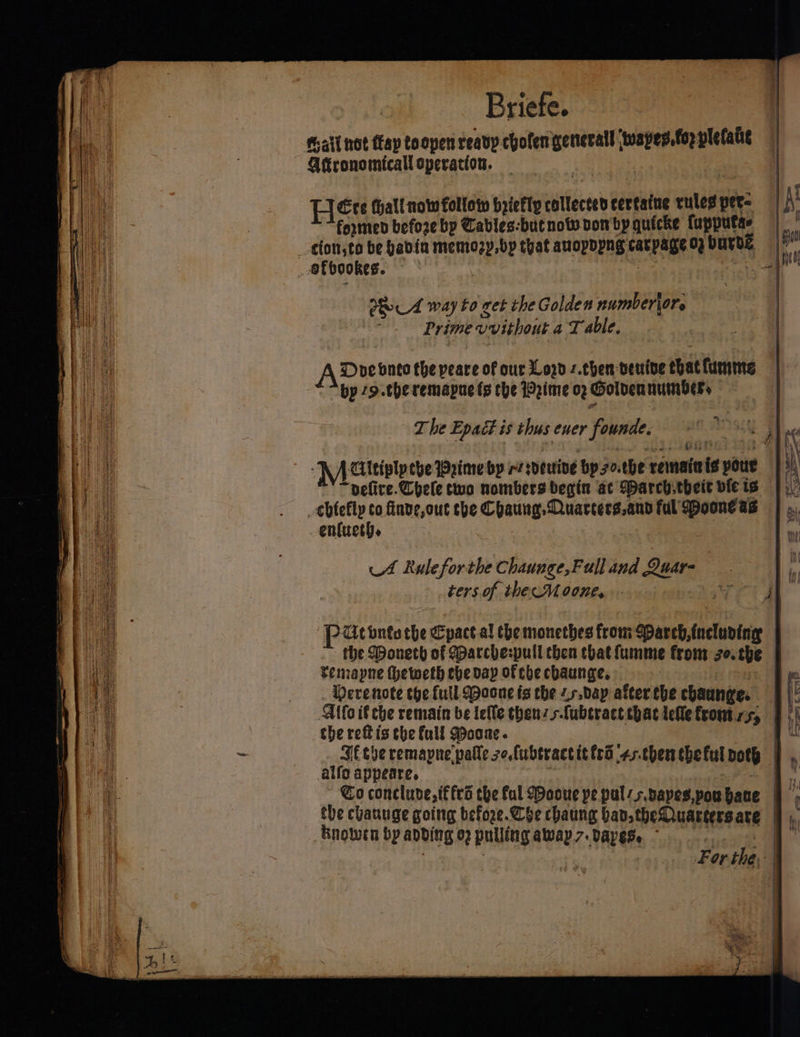 Briefe.
ſhall not ſtay to open ready choſen generall wayes, for pleſaūt
Aſtronomicall operation.
HEre ſhall now follow briefly collected certaine rules per-
formed before by Tables: but now don by quicke ſupputa-
cion, to be had in memory, by that auoydyng caryage or burdē
of bookes.
A way to get the Golden number, or
Prime vvithout a Table.
ADde vnto the yeare of our Lord 1. then deuide that ſumme
by 19. the remayne is the Prime or Golden number.
The Epact is thus euer founde.
MUltiply the Prime by 11: deuide by 30. the remain is your
deſire. Theſe two nombers begin at March. their vſe is
chiefly to finde, out the Chaung, Quarters, and ful Moone as
enſueth.
A Rule for the Chaunge, Full and Quar-
ters of the Moone.
PUt vnto the Epact al the monethes from March, including
the Moneth of Marche: pull then that ſumme from 30. the
remayne ſheweth the day of the chaunge.
Here note the full Moone is the 15. day after the chaunge.
Alſo if the remain be leſſe then 15. ſubtract that leſſe from 15,
the reſt is the full Moone.
If the remayne paſſe 30. ſubtract it frō 45. then the ful doth
alſo appeare.
To conclude, if frō the ful Moone ye pul 15. dayes, you haue
the chaunge going before. The chaung had, the Quarters are
knowen by adding or pulling away 7. dayes.
For the